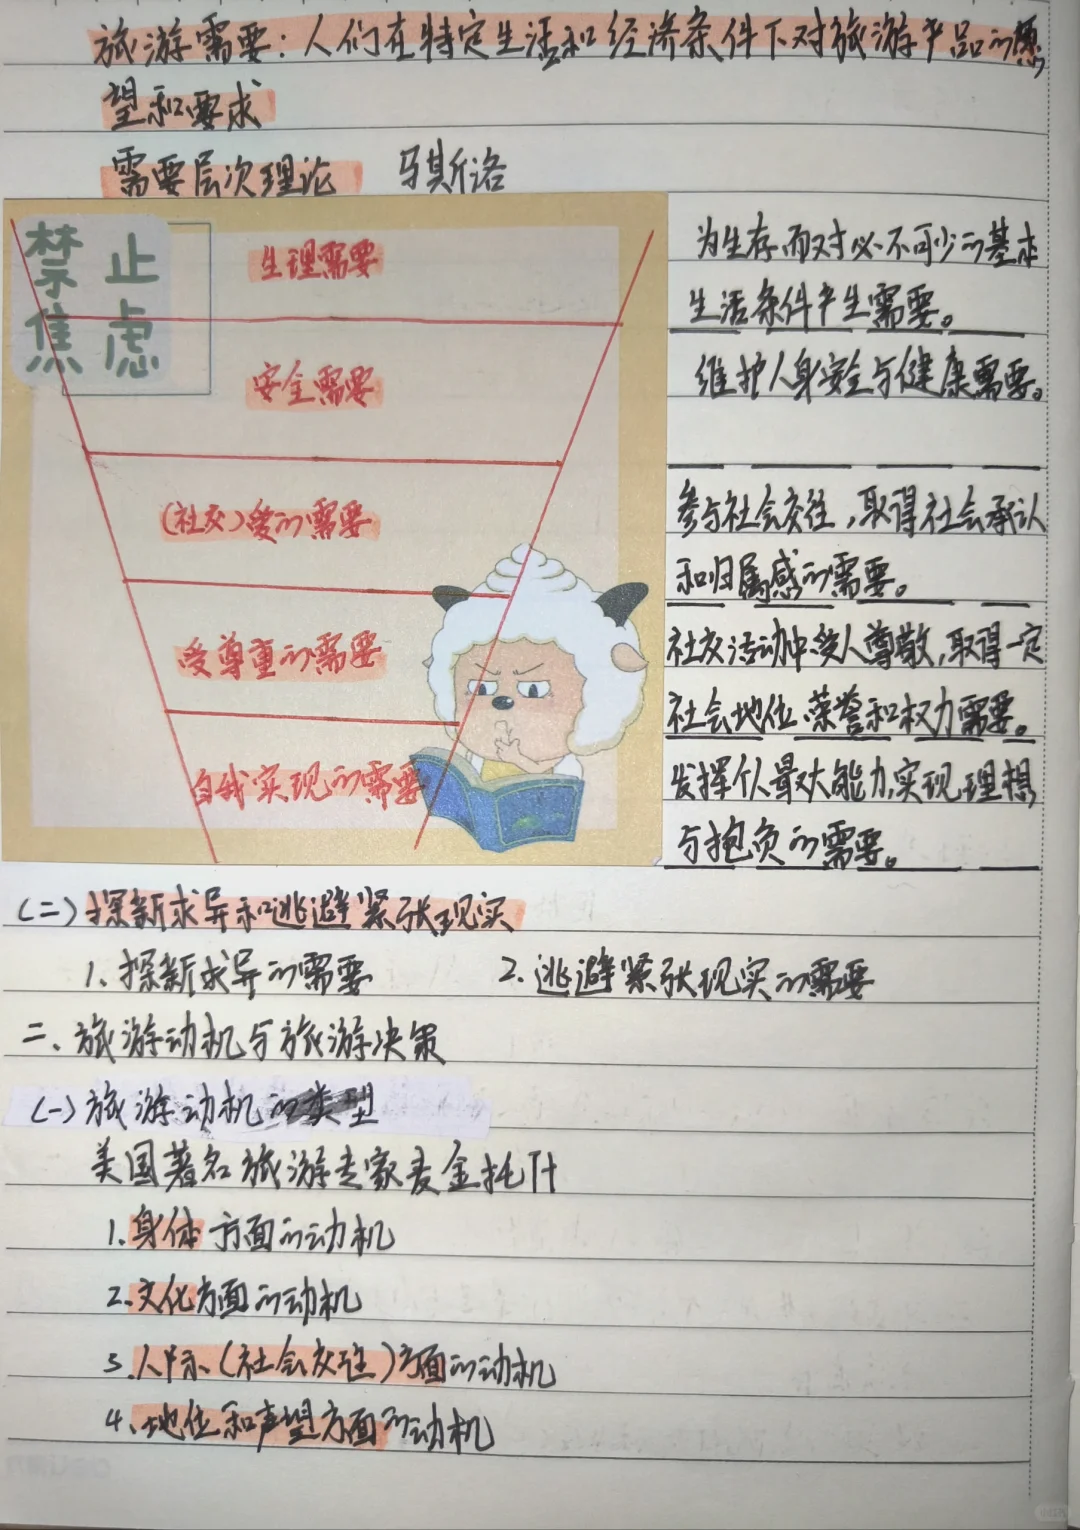 旅游需要：人们在特定生活和经济条件下对旅游产品的愿
望和要求
需要层次理论 马斯洛
禁止
焦虑
生理需要
为生存而对必不可少的基本
生活条件产生需要。
安全需要
维护人身安全与健康需要。
(社交)爱的需要
参与社会交往，取得社会承认
和归属感的需要。
受尊重的需要
社交活动中受人尊敬，取得一定
社会地位、荣誉和权力需要。
自我实现的需要
发挥个人最大能力，实现理想
与抱负的需要。
(二)探新求异和逃避紧张现实
1.探新求异的需要 2.逃避紧张现实的需要
二、旅游动机与旅游决策
(一)旅游动机的类型
美国著名旅游专家麦金托什
1.身体方面的动机
2.文化方面的动机
3.人际(社会交往)方面的动机
4.地位和声望方面的动机